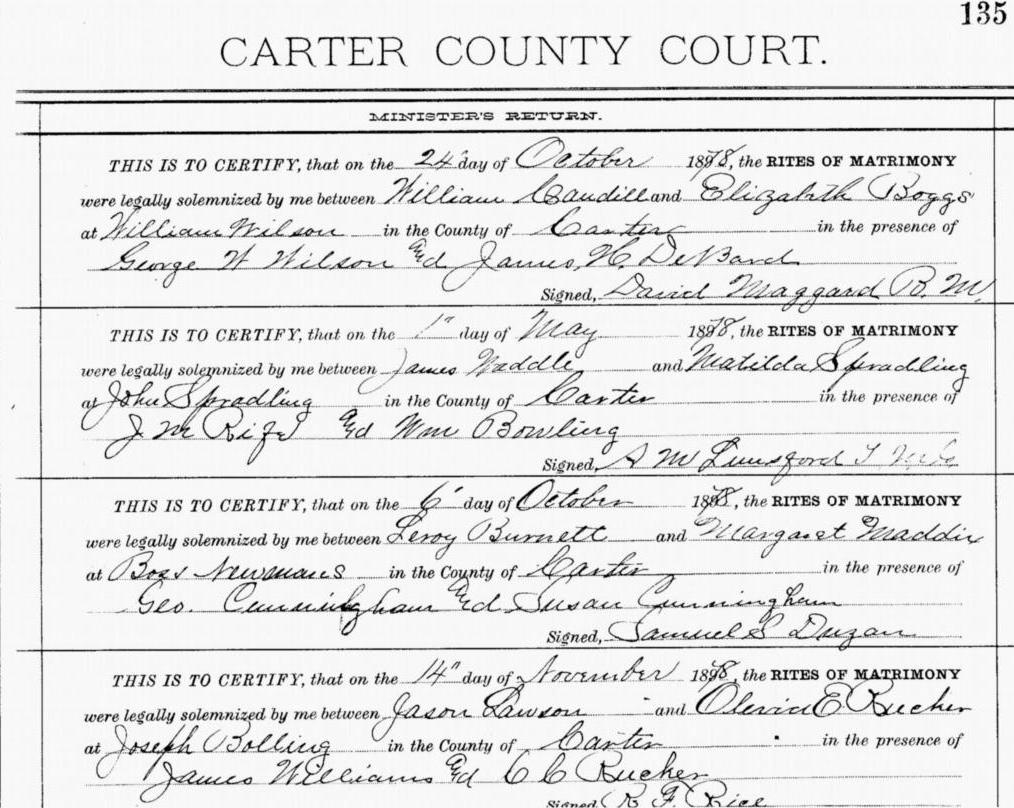 135
CARTER COUNTY COURT.
MINISTER'S RETURN.
THIS IS TO CERTIFY, that on the 24" day of October 1878, the RITES OF MATRIMONY
were legally solemnized by me between William Caudill and Elizabeth Boggs
at William Wilson in the County of Carter in the presence of
George W Wilson And James H. DeBard
Signed, David Maggard B. M.
THIS IS TO CERTIFY, that on the 1" day of May 1878, the RITES OF MATRIMONY
were legally solemnized by me between James Waddle and Matilda Spradling
at John Spradling in the County of Carter in the presence of
J M Rife And Wm Bowling
Signed, A M Lunsford
THIS IS TO CERTIFY, that on the 6" day of October 1878, the RITES OF MATRIMONY
were legally solemnized by me between Leroy Burnett and Margaret Maddix
at Boss Newmans in the County of Carter in the presence of
Geo. Cunningham And Susan Cunningham
Signed, Samuel S Duzan
THIS IS TO CERTIFY, that on the 14" day of November 1878, the RITES OF MATRIMONY
were legally solemnized by me between Jason Lawson and E Rucker
at Joseph Bolling in the County of Carter in the presence of
James Williams And C C Rucker
Signed R F Rice